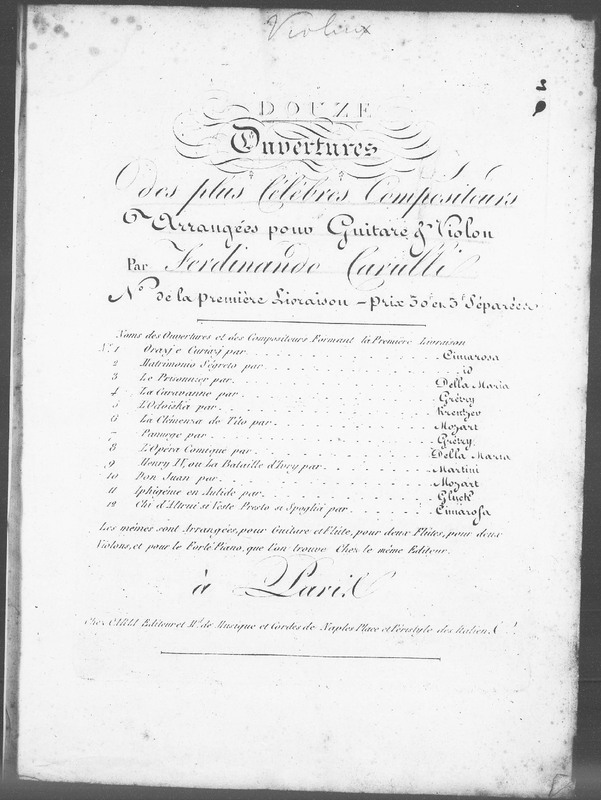 Violino
DOUZE
Ouvertures
des plus Célèbres Compositeurs
Arrangées pour Guitare & Violon
Par Ferdinando Carulli
No. de la première Livraison - Prix 30f. et 3f. Séparées
Noms des Ouvertures et des Compositeurs Formant la Première Livraison
No. 1 Orazj e Curiazj par . . . Cimarosa
2 Matrimonio Ségreto par . . . id
3 Le Prisonnier par . . . Della Maria
4 La Caravanne par . . . Grétry
5 L'Odoiska par . . . Kreutzer
6 La Clémenza de Tito par . . . Mozart
7 Panurge par . . . Grétry
8 L'Opéra Comique par . . . Della Maria
9 Henry IV, ou la Bataille d'Ivry par . . . Martini
10 Don Juan par . . . Mozart
11 Iphigénie en Aulide par . . . Gluck
12 Chi d'Altrui si Veste Presto si Spoglia par . . . Cimarosa
Les mêmes sont Arrangées, pour Guitare et Flûte, pour deux Flûtes, pour deux
Violons, et pour le Forté Piano, que l'on trouve Chez le même Editeur.
à Paris
Chez CARLI Editeur et Md. de Musique et Cordes de Naples Place et Péristyle des Italiens